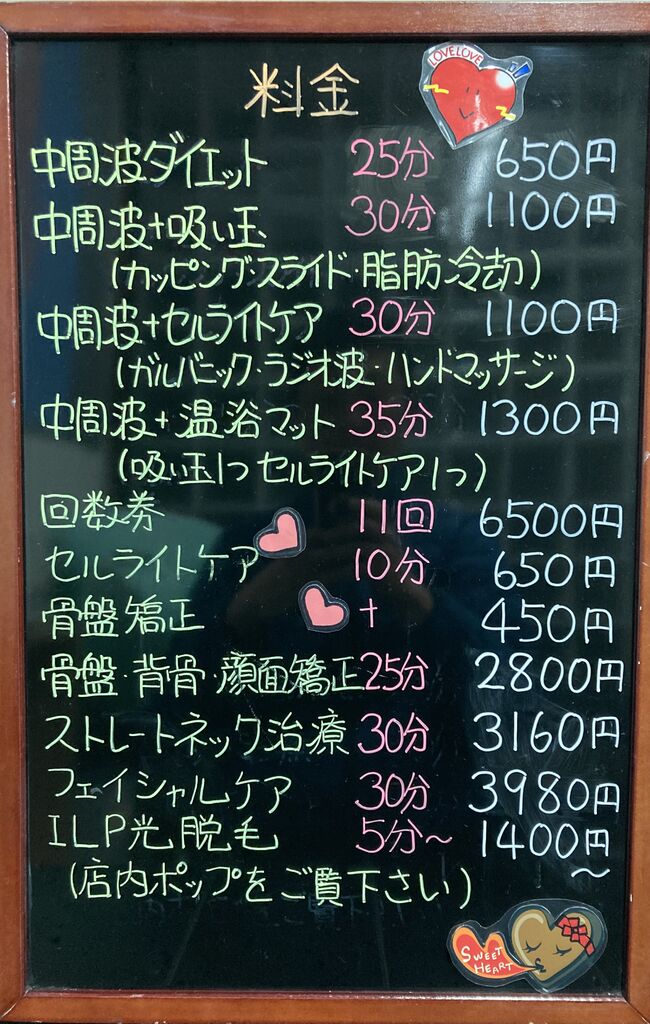 料金
LOVELOVE
中周波ダイエット 25分 650円
中周波+吸い玉 30分 1100円
(カッピング・スライド・脂肪冷却)
中周波+セルライトケア 30分 1100円
(ガルバニック・ラジオ波・ハンドマッサージ)
中周波+温浴マット 35分 1300円
(吸い玉1つ セルライトケア1つ)
回数券 11回 6500円
セルライトケア 10分 650円
骨盤矯正 + 450円
骨盤・背骨・顔面矯正 25分 2800円
ストレートネック治療 30分 3160円
フェイシャルケア 30分 3980円
ILP光脱毛 5分〜 1400円〜
(店内ポップをご覧下さい)
SWEET
HEART